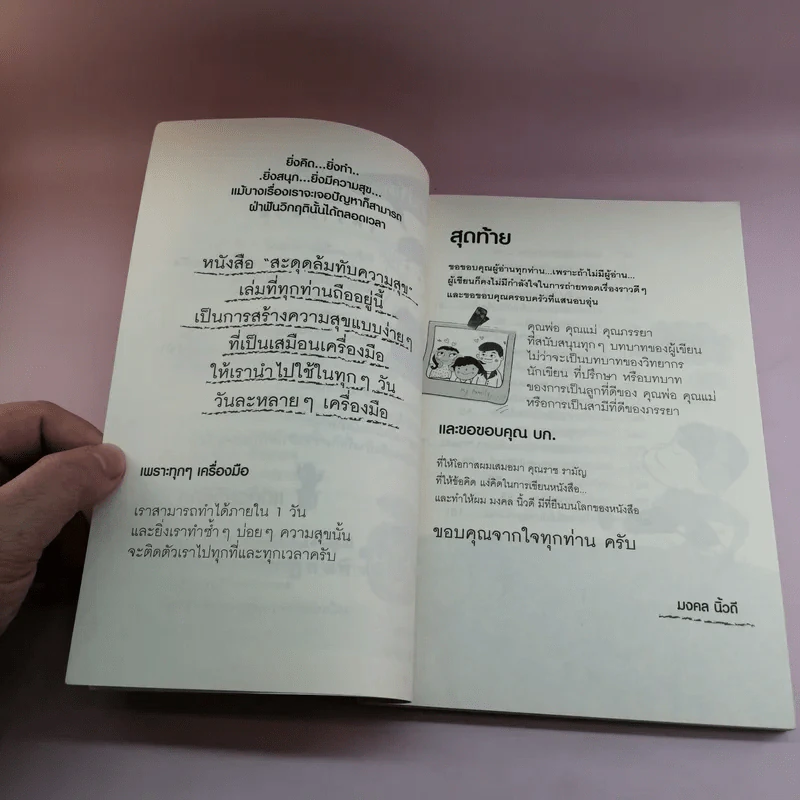 ยิ่งคิด...ยิ่งทำ..
.ยิ่งสนุก...ยิ่งมีความสุข...
แม้บางเรื่องเราจะเจอปัญหาก็สามารถ
ฝ่าฟันวิกฤตินั้นได้ตลอดเวลา
หนังสือ "สะดุดล้มทับความสุข"
เล่มที่ทุกท่านถืออยู่นี้
เป็นการสร้างความสุขแบบง่ายๆ
ที่เป็นเสมือนเครื่องมือ
ให้เรานำไปใช้ในทุกๆ วัน
วันละหลายๆ เครื่องมือ
เพราะทุกๆ เครื่องมือ
เราสามารถทำได้ภายใน 1 วัน
และยิ่งเราทำซ้ำๆ บ่อยๆ ความสุขนั้น
จะติดตัวเราไปทุกที่และทุกเวลาครับ
สุดท้าย
ขอขอบคุณผู้อ่านทุกท่าน...เพราะถ้าไม่มีผู้อ่าน...
ผู้เขียนก็คงไม่มีกำลังใจในการถ่ายทอดเรื่องราวดีๆ
และขอขอบคุณครอบครัวที่แสนอบอุ่น
คุณพ่อ คุณแม่ คุณภรรยา
ที่สนับสนุนทุกๆ บทบาทของผู้เขียน
ไม่ว่าจะเป็นบทบาทของวิทยากร
นักเขียน ที่ปรึกษา หรือบทบาท
ของการเป็นลูกที่ดีของ คุณพ่อ คุณแม่
หรือการเป็นสามีที่ดีของภรรยา
My Family
และขอขอบคุณ บก.
ที่ให้โอกาสผมเสมอมา คุณราช รามัญ
ที่ให้ข้อคิด แง่คิดในการเขียนหนังสือ...
และทำให้ผม มงคล นิ้วดี มีที่ยืนบนโลกของหนังสือ
ขอบคุณจากใจทุกท่าน ครับ
มงคล นิ้วดี